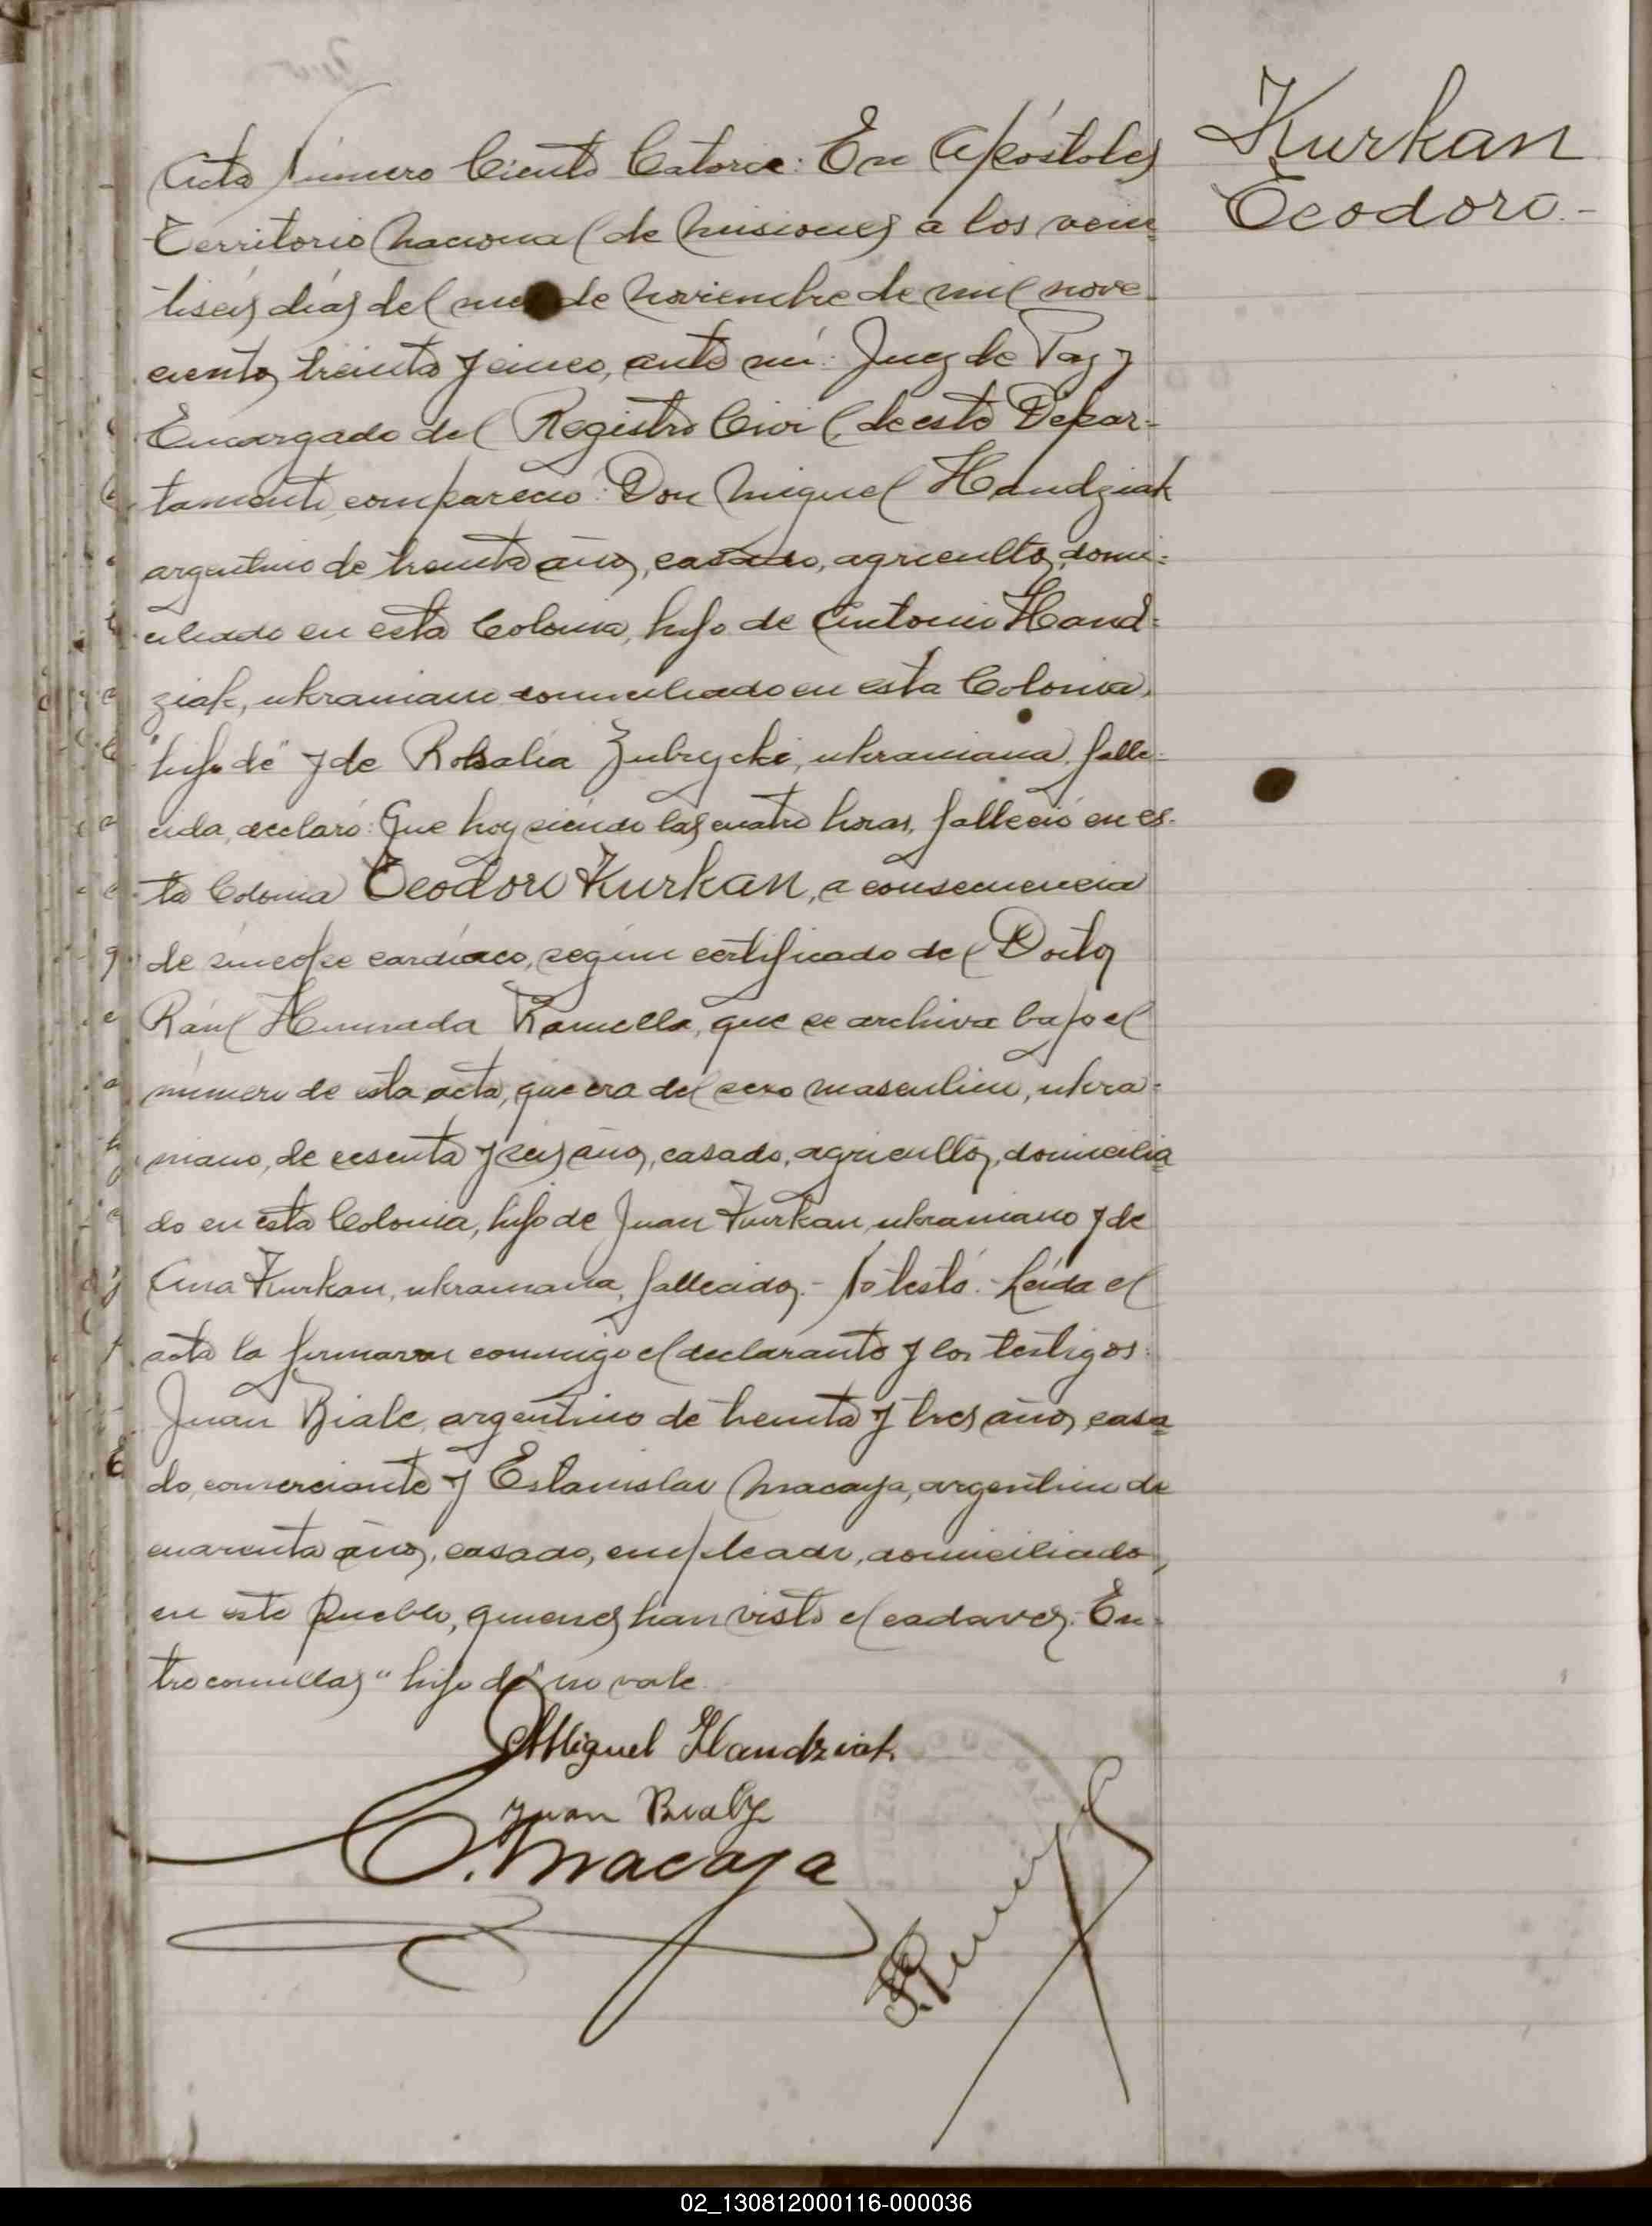 Kurkan
Teodoro.-
Acta Número Ciento Catorce: En Apóstoles
Territorio Nacional de Misiones a los vein=
tiseis días del mes de Noviembre de mil nove-
cientos treinta y cinco, ante mí: Juez de Paz y
Encargado del Registro Civil, de este Depar-
tamento, compareció: Don Miguel Handziak
argentino de treinta años, casado, agricultor, domi=
ciliado en esta Colonia, hijo de Antonio Hand=
ziak, ukraniano domiciliado en esta Colonia,
"hijo de" y de Rosalia Zubrycki, ukraniana, falle=
cida, declaró: Que hoy siendo las cuatro horas, falleció en es-
ta Colonia Teodoro Kurkan, a consecuencia
de síncope cardíaco, según certificado del Doctor
Raúl Ramella, que se archiva bajo el
número de esta acta, que era del sexo masculino, ukra=
niano, de sesenta y seis años, casado, agricultor, domicilia
do en esta Colonia, hijo de Juan Kurkan, ukraniano y de
Ana Kurkan, ukraniana, fallecidos.- No testó.- Leída el
acta la firmaron conmigo el declarante y los testigos:
Juan Biale, argentino de treinta y tres años, casa=
do, comerciante y Estanislao Macaya, argentino de
cuarenta años, casado, empleado, domiciliados,
en este Pueblo, quienes han visto el cadaver. En=
tre comillas "hijo de" no vale.
Miguel Handziak
Juan Bialy
E. Macaya
02_130812000116-000036